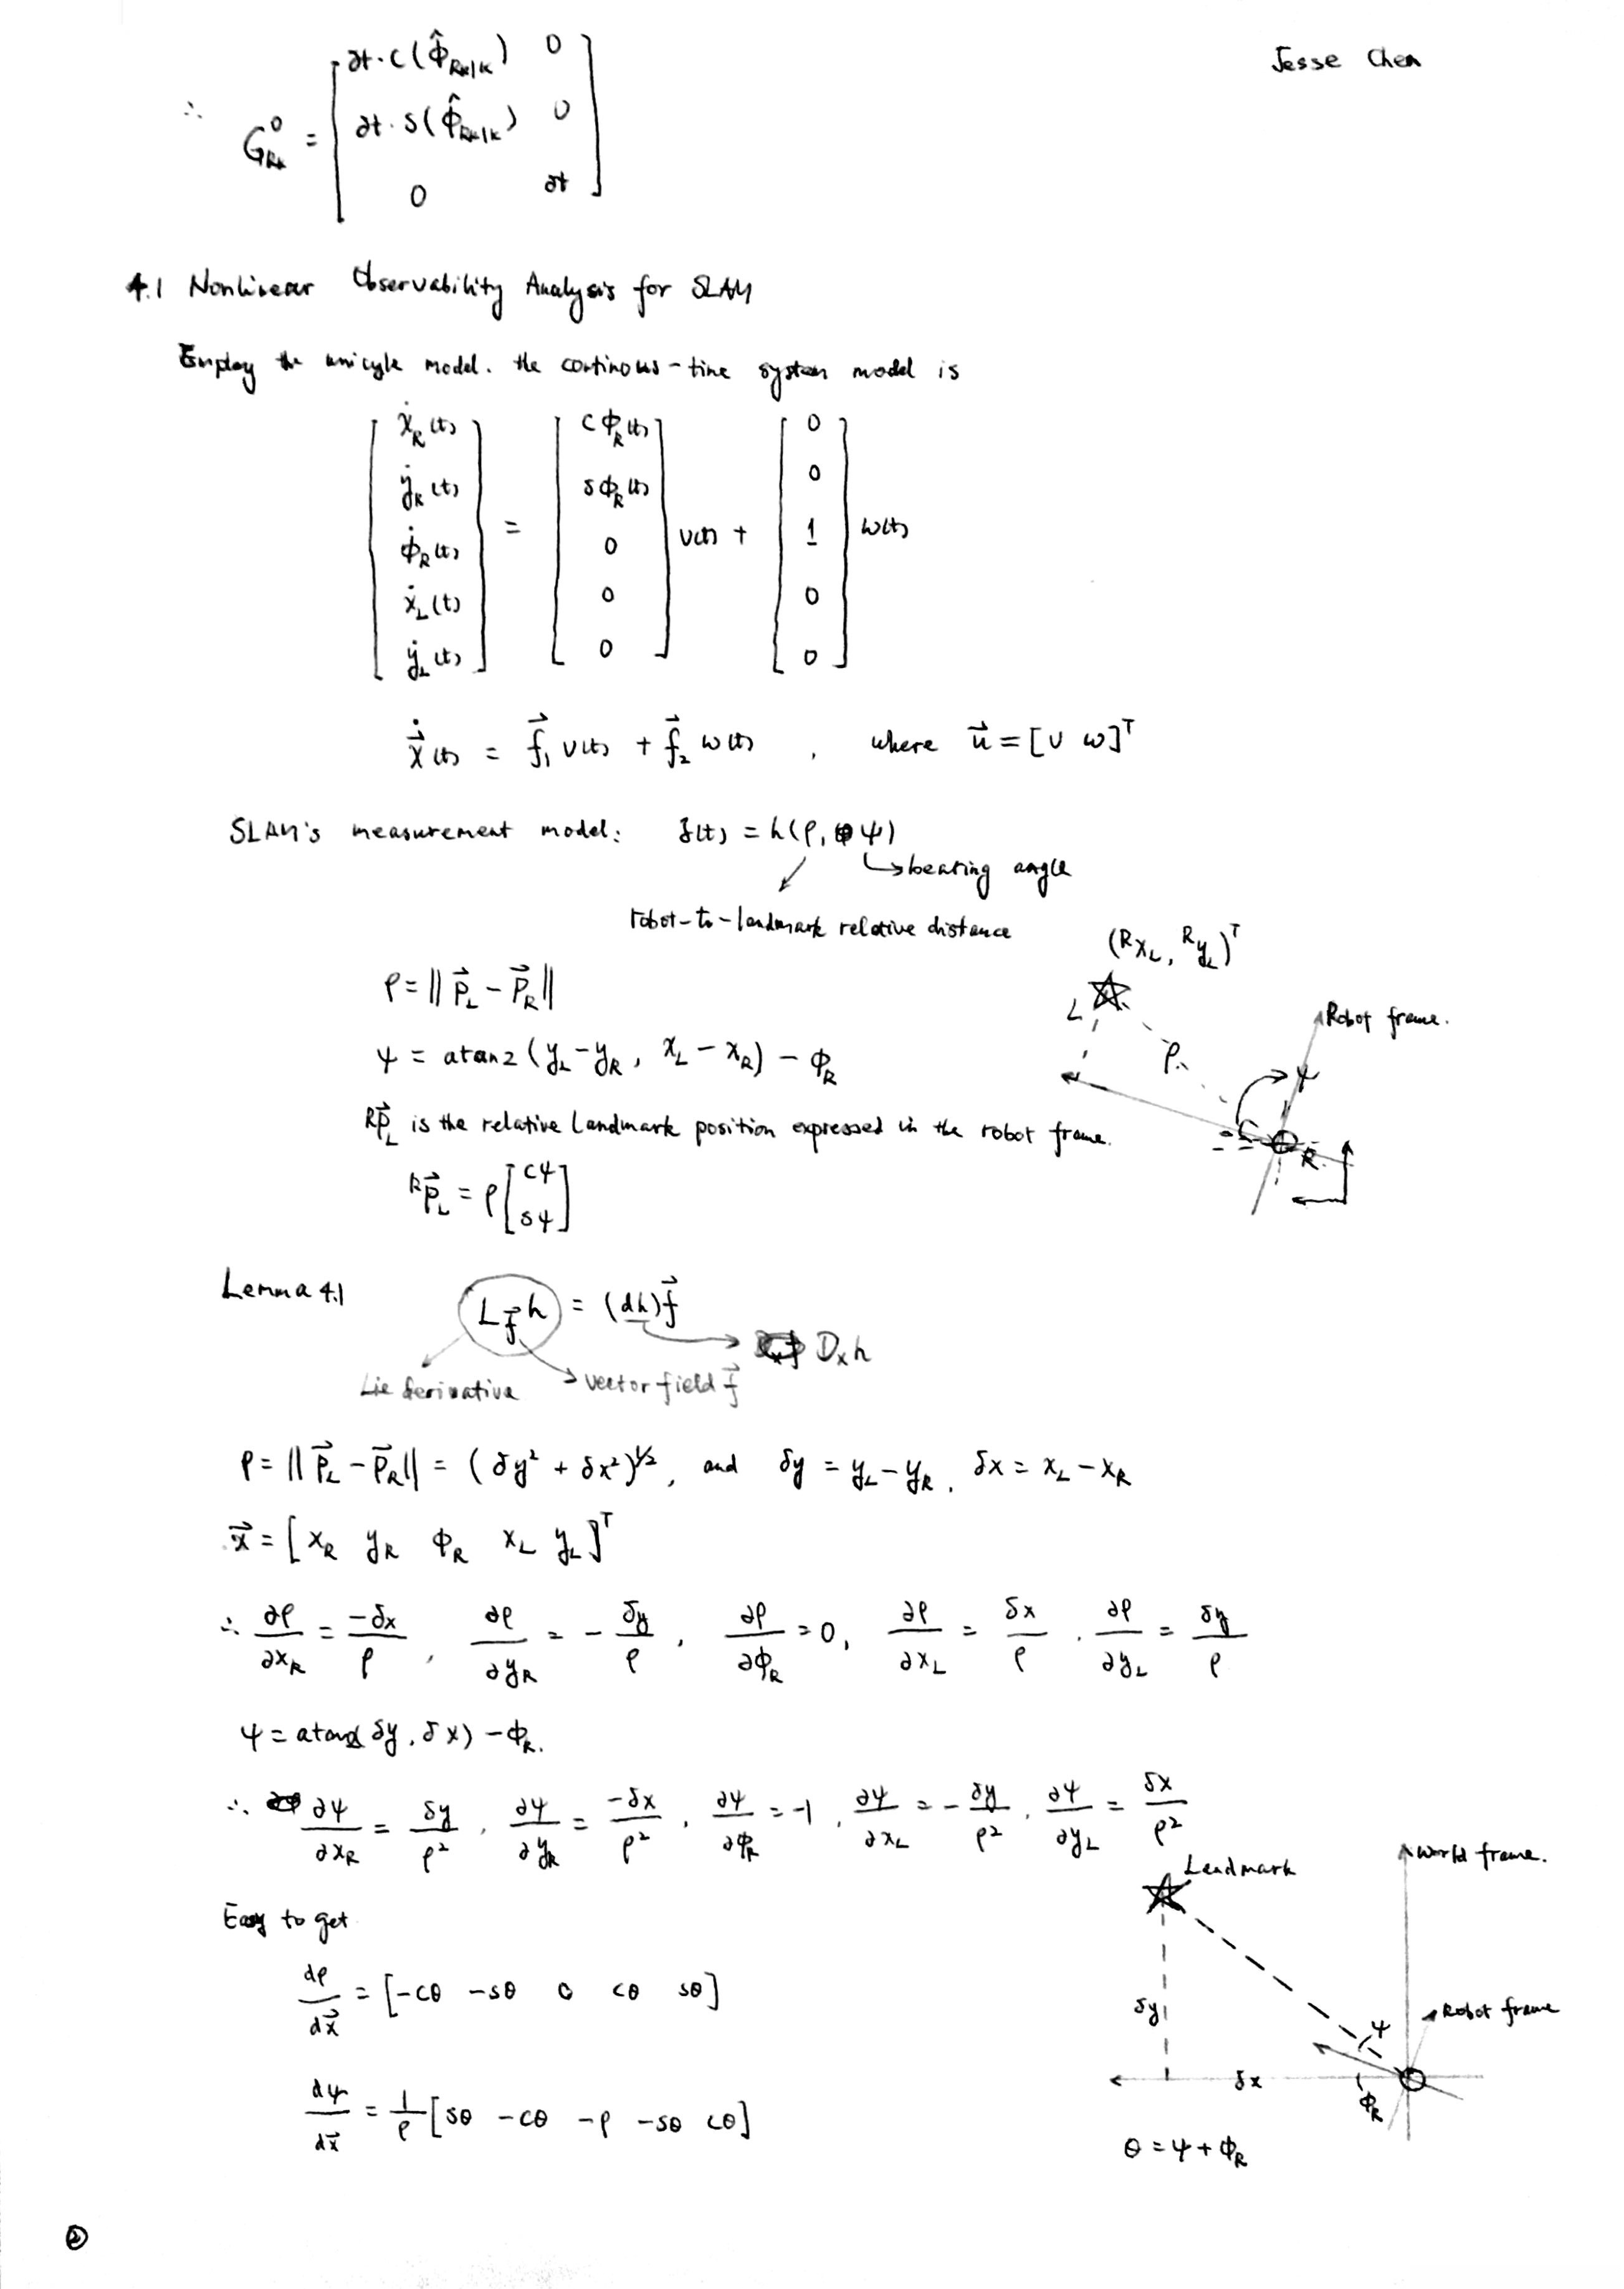 Jesse Chen
∴ G⁰_Rk = [ ∂t·c(Φ̂_Rk|k) 0
∂t·s(Φ̂_Rk|k) 0
0 ∂t ]
4.1 Nonlinear Observability Analysis for SLAM
Employ the unicyle model. the continous-time system model is
[ ẋ_R(t) ẏ_R(t) ϕ̇_R(t) ẋ_L(t) ẏ_L(t) ] = [ cϕ_R(t) sϕ_R(t) 0 0 0 ] v(t) + [ 0 0 1 0 0 ] w(t)
ẋ⃗(t) = f⃗₁ v(t) + f⃗₂ w(t) , where u⃗ = [v w]ᵀ
SLAM's measurement model: z(t) = h(ρ, ψ)
bearing angle
robot-to-landmark relative distance
(ᴿx_L, ᴿy_L)ᵀ
L
Robot frame.
ρ
ψ
R
ρ = ‖p⃗_L − p⃗_R‖
ψ = atan2(y_L − y_R, x_L − x_R) − ϕ_R
ᴿp⃗_L is the relative Landmark position expressed in the robot frame.
ᴿp⃗_L = ρ [ cψ sψ ]
Lemma 4.1
L_f⃗ h = (dh)f⃗
D_x h
Lie derivative
vector field f⃗
ρ = ‖p⃗_L − p⃗_R‖ = (δy² + δx²)^½, and δy = y_L − y_R, δx = x_L − x_R
x⃗ = [x_R y_R ϕ_R x_L y_L]ᵀ
∴ ∂ρ/∂x_R = −δx/ρ, ∂ρ/∂y_R = −δy/ρ, ∂ρ/∂ϕ_R = 0, ∂ρ/∂x_L = δx/ρ, ∂ρ/∂y_L = δy/ρ
ψ = atan2(δy, δx) − ϕ_R.
∴ ∂ψ/∂x_R = δy/ρ², ∂ψ/∂y_R = −δx/ρ², ∂ψ/∂ϕ_R = −1, ∂ψ/∂x_L = −δy/ρ², ∂ψ/∂y_L = δx/ρ²
Easy to get
dρ/dx⃗ = [−cθ −sθ 0 cθ sθ]
dψ/dx⃗ = 1/ρ [sθ −cθ −ρ −sθ cθ]
Landmark
World frame.
δy
Robot frame
ψ
δx
ϕ_R
θ = ψ + ϕ_R
②